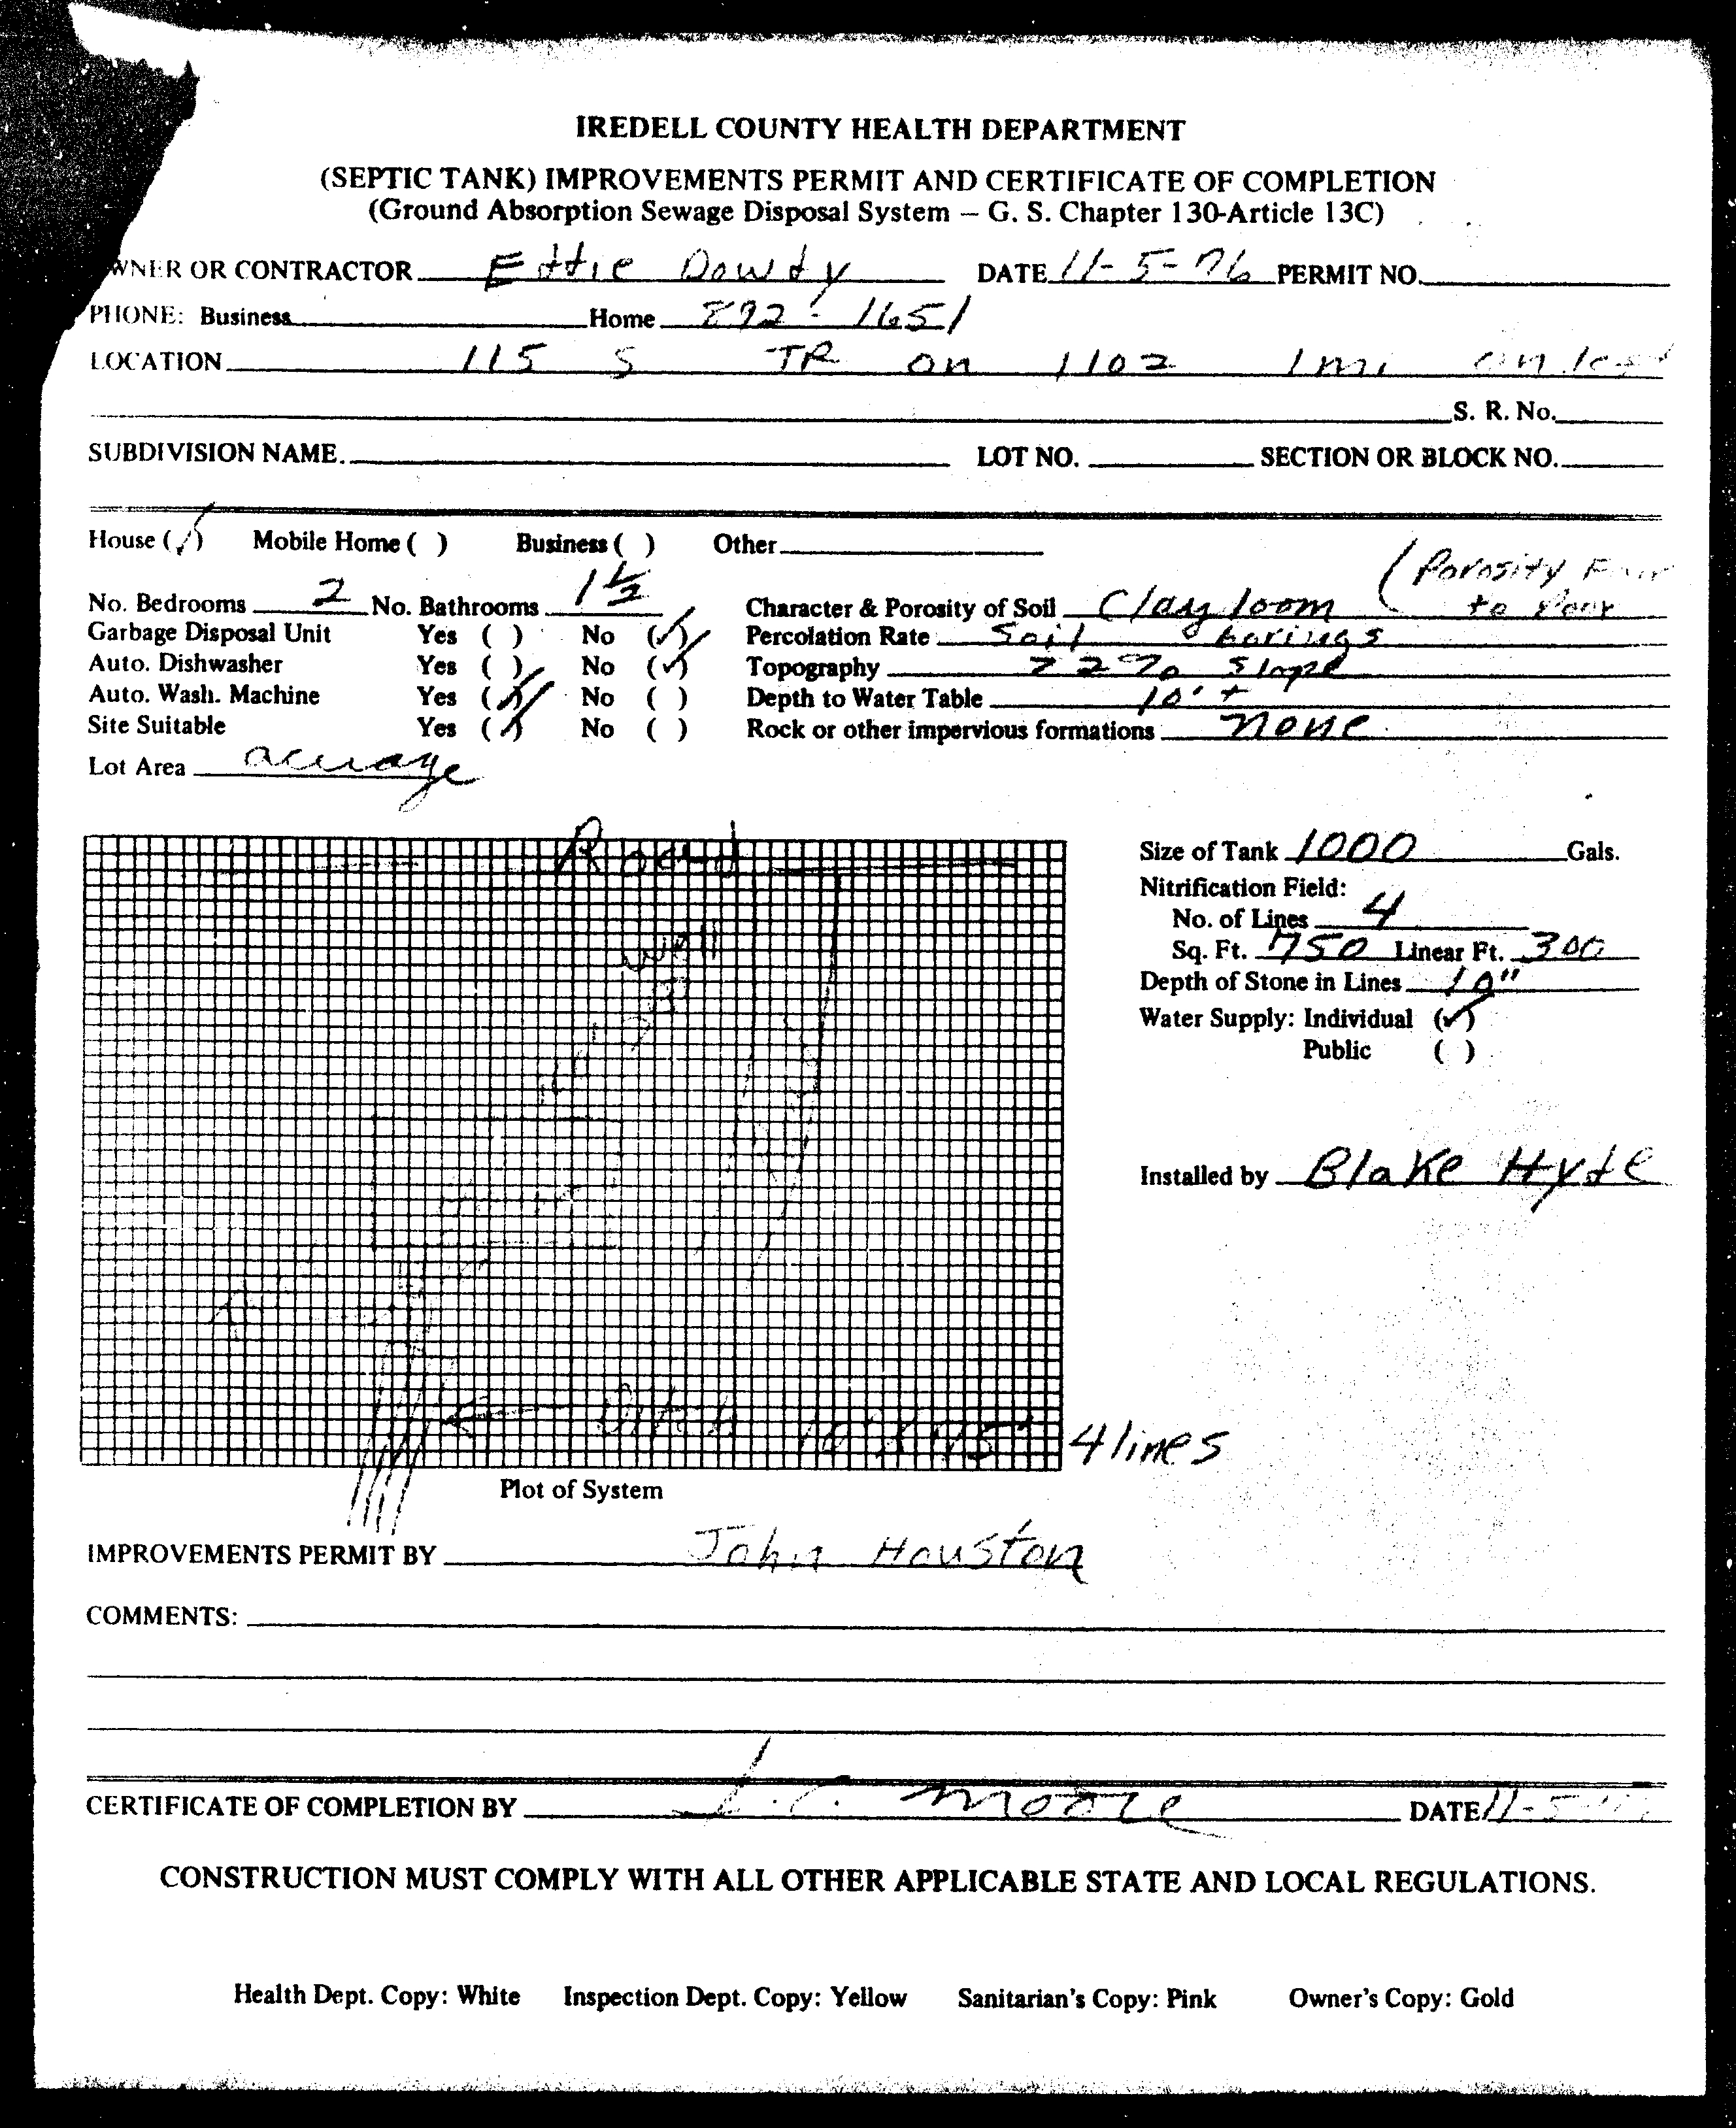 IREDELL COUNTY HEALTH DEPARTMENT
(SEPTIC TANK) IMPROVEMENTS PERMIT AND CERTIFICATE OF COMPLETION
(Ground Absorption Sewage Disposal System – G. S. Chapter 130-Article 13C)
WNER OR CONTRACTOR Eddie Dowdy DATE 11-5-76 PERMIT NO.
PHONE: Business Home 892-1651
LOCATION 115 S TR on 1102 1 mi on
S. R. No.
SUBDIVISION NAME. LOT NO. SECTION OR BLOCK NO.
House (✓) Mobile Home ( ) Business ( ) Other
(Porosity Fair
No. Bedrooms 2 No. Bathrooms 1 1/2 Character & Porosity of Soil Clay loom to Poor
Garbage Disposal Unit Yes ( ) No (✓) Percolation Rate Soil borings
Auto. Dishwasher Yes ( ) No (✓) Topography 22% Slope
Auto. Wash. Machine Yes (✓) No ( ) Depth to Water Table 10' +
Site Suitable Yes (✓) No ( ) Rock or other impervious formations none
Lot Area acerage
Road
Size of Tank 1000 Gals.
Nitrification Field:
No. of Lines 4
well
Sq. Ft. 750 Linear Ft. 300
Depth of Stone in Lines 10"
Water Supply: Individual (✓)
Public ( )
Installed by Blake Hyde
Ditch 10' X 75' 4 lines
Plot of System
IMPROVEMENTS PERMIT BY John Houston
COMMENTS:
CERTIFICATE OF COMPLETION BY L. C. Moore DATE 11-5-
CONSTRUCTION MUST COMPLY WITH ALL OTHER APPLICABLE STATE AND LOCAL REGULATIONS.
Health Dept. Copy: White Inspection Dept. Copy: Yellow Sanitarian's Copy: Pink Owner's Copy: Gold